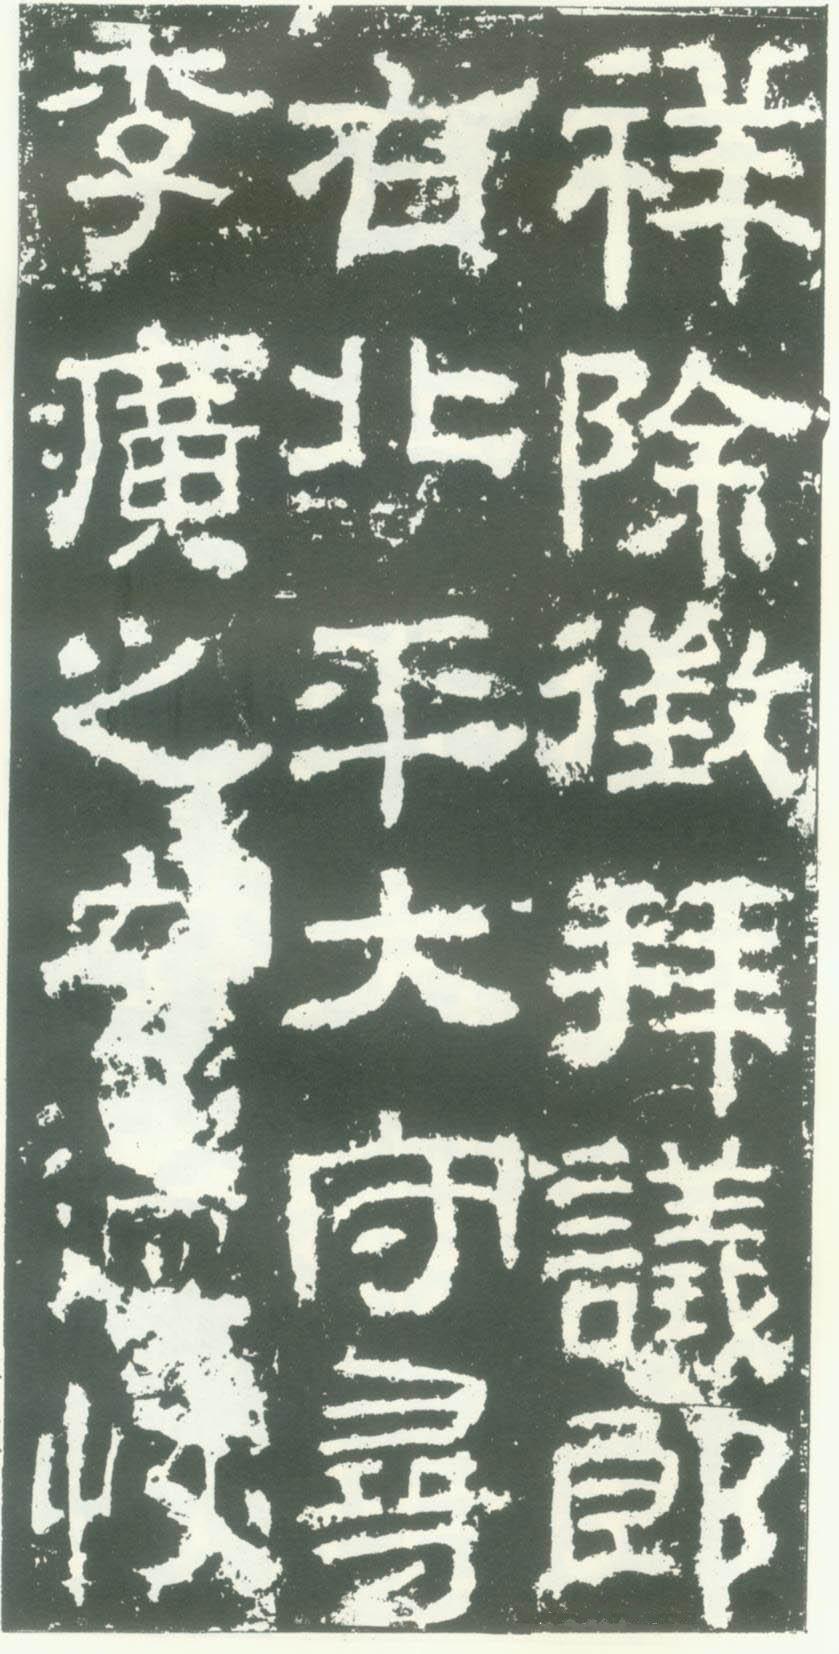 祥除徵拜議郎
右北平大守尋
李廣之恢